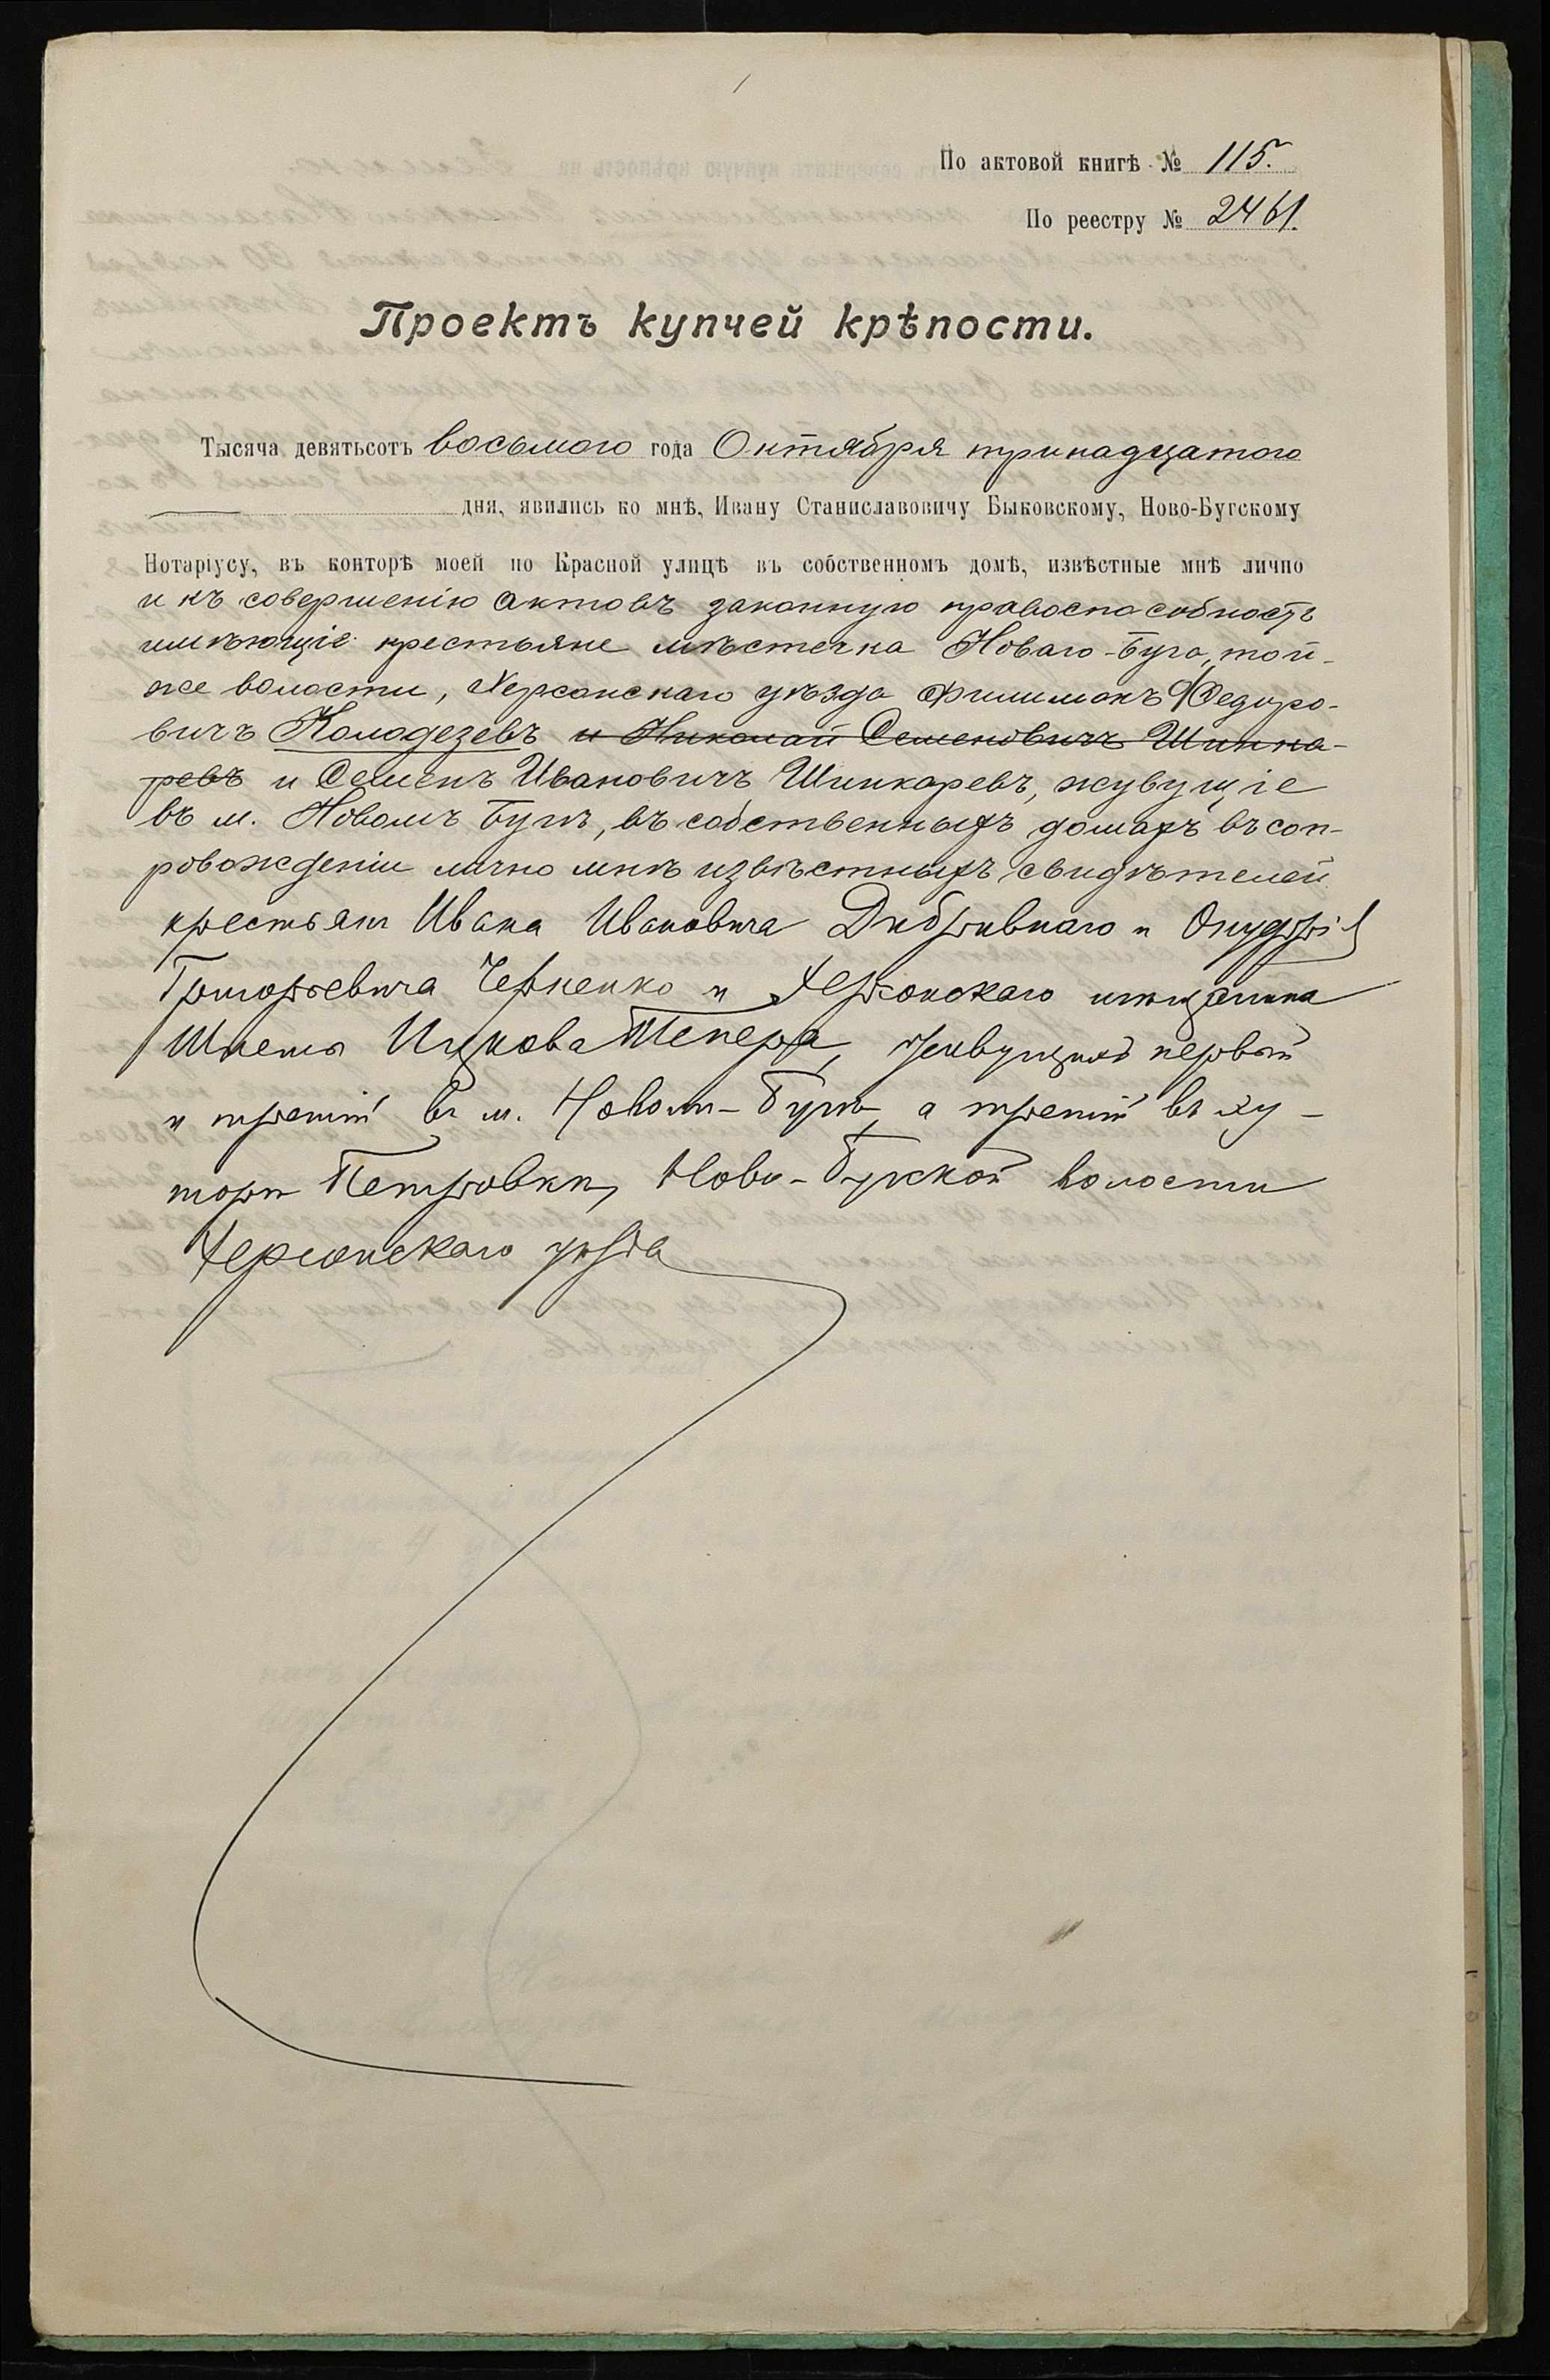 По актовой книгѣ № 115.
По реестру № 2461.
Проектъ купчей крѣпости.
Тысяча девятьсотъ восьмого года Октября тринадцатого
дня, явились ко мнѣ, Ивану Станиславовичу Быковскому, Ново-Бугскому
Нотаріусу, въ конторѣ моей по Красной улицѣ въ собственномъ домѣ, извѣстные мнѣ лично
и къ совершенію актовъ законную правоспособность
имѣющіе крестьяне мѣстечка Новаго-Буга, той-
же волости, Херсонскаго уѣзда Филимонъ Федоро-
вичъ Колодезевъ и Николай Семеновичъ Шинка-
ревъ и Семенъ Ивановичъ Шинкаревъ, жувущіе
въ м. Новомъ Бугѣ, въ собственныхъ домахъ въ соп-
ровожденіи лично мнѣ извѣстныхъ свидѣтелей
крестьянъ Ивана Ивановича и
Григорьевича Черненко и Херсонскаго мѣщанина
Ицкова живущихъ первый
и третій въ м. Новомъ-Бугѣ, а третій въ ху-
торѣ Петровкѣ, Ново-Бугской волости
Херсонскаго уѣзда